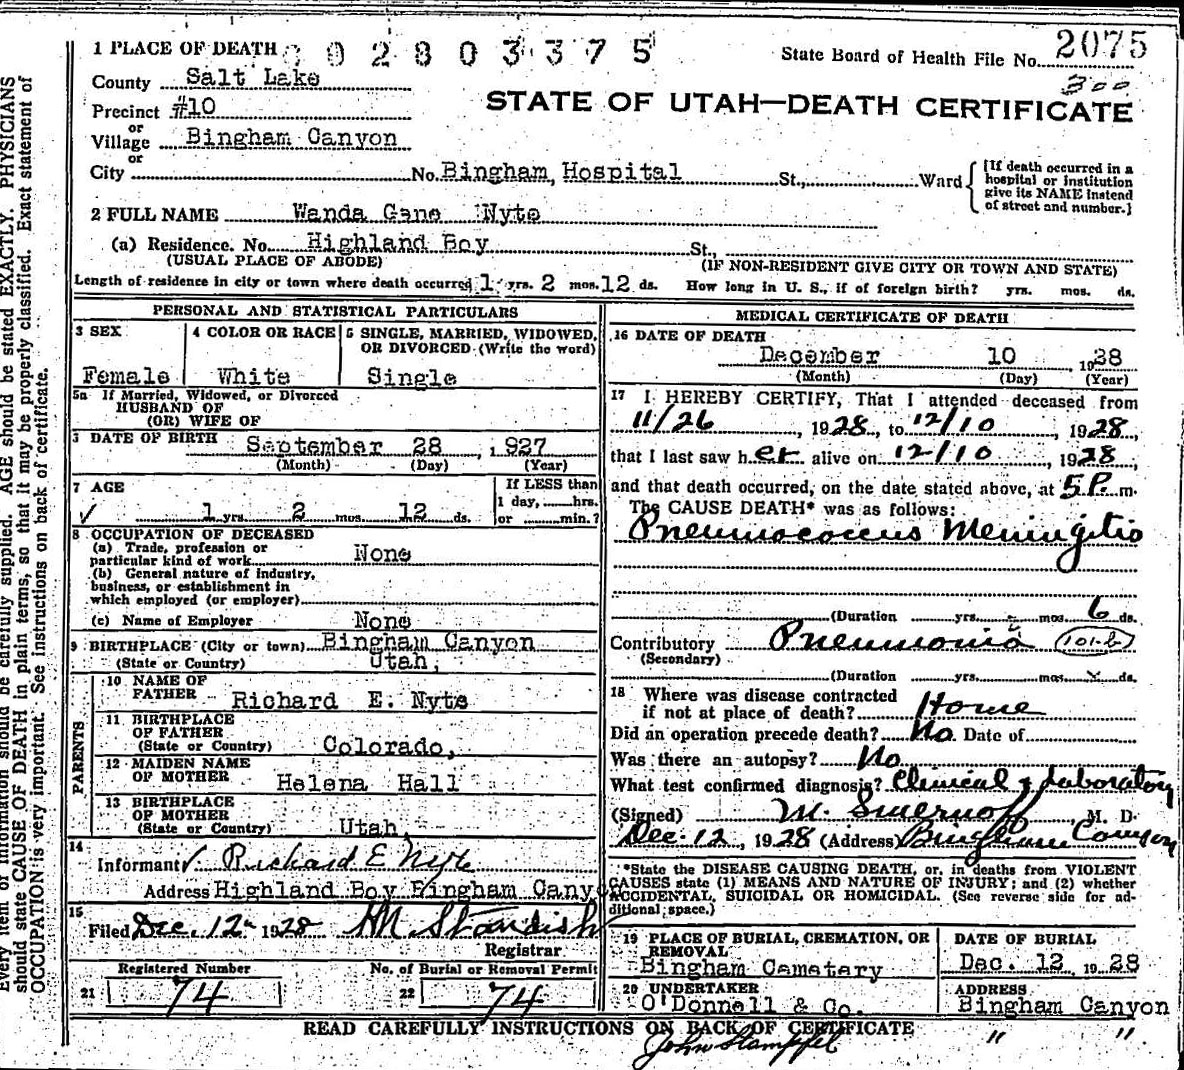 1 PLACE OF DEATH 0 2 8 0 3 3 7 5
State Board of Health File No. 2075
300
County Salt Lake
Precinct #10
STATE OF UTAH—DEATH CERTIFICATE
or
Village Bingham Canyon
or
City No. Bingham, Hospital St., Ward
[If death occurred in a
hospital or institution
give its NAME instead
of street and number.]
2 FULL NAME Wanda Gane Nyte
(a) Residence. No. Highland Boy St.,
(USUAL PLACE OF ABODE) (IF NON-RESIDENT GIVE CITY OR TOWN AND STATE)
Length of residence in city or town where death occurred 1 yrs. 2 mos. 12 ds. How long in U. S., if of foreign birth? yrs. mos. ds.
PERSONAL AND STATISTICAL PARTICULARS
3 SEX 4 COLOR OR RACE 5 SINGLE, MARRIED, WIDOWED,
OR DIVORCED (Write the word)
Female White Single
5a If Married, Widowed, or Divorced
HUSBAND OF
(OR) WIFE OF
DATE OF BIRTH September 28, 1927
(Month) (Day) (Year)
7 AGE If LESS than
1 day, hrs.
✓ 1 yrs. 2 mos. 12 ds. or min.?
8 OCCUPATION OF DECEASED
(a) Trade, profession or
particular kind of work None
(b) General nature of industry,
business, or establishment in
which employed (or employer)
(c) Name of Employer None
9 BIRTHPLACE (City or town) Bingham Canyon
(State or Country) Utah,
PARENTS
10 NAME OF
FATHER Richard E. Nyte
11 BIRTHPLACE
OF FATHER
(State or Country) Colorado,
12 MAIDEN NAME
OF MOTHER Helena Hall
13 BIRTHPLACE
OF MOTHER
(State or Country) Utah,
14
Informant ✓ Richard E Nyte
Address Highland Boy Bingham Canyo
15
Filed Dec. 12 1928 HM Standish
Registrar
Registered Number No. of Burial or Removal Permit
21 74 22 74
MEDICAL CERTIFICATE OF DEATH
16 DATE OF DEATH
December 10 1928
(Month) (Day) (Year)
17 I HEREBY CERTIFY, That I attended deceased from
11/26, 1928, to 12/10, 1928,
that I last saw her alive on 12/10, 1928,
and that death occurred, on the date stated above, at 5 P. m.
The CAUSE DEATH* was as follows:
Pneumococcus Meningitis
(Duration yrs. mos. 6 ds.
Contributory Pneumonia 101-b
(Secondary)
(Duration yrs. mos. ds.
18 Where was disease contracted
if not at place of death? Home
Did an operation precede death? No Date of
Was there an autopsy? No
What test confirmed diagnosis? Clinical & Laboratory
(Signed) M. Smernoff, M. D.
Dec. 12, 1928 (Address) Bingham Canyon
*State the DISEASE CAUSING DEATH, or, in deaths from VIOLENT
CAUSES state (1) MEANS AND NATURE OF INJURY; and (2) whether
ACCIDENTAL, SUICIDAL OR HOMICIDAL. (See reverse side for ad-
ditional space.)
19 PLACE OF BURIAL, CREMATION, OR
REMOVAL
Bingham Cemetery
DATE OF BURIAL
Dec. 12, 1928
20 UNDERTAKER
O'Donnell & Co.
ADDRESS
Bingham Canyon
READ CAREFULLY INSTRUCTIONS ON BACK OF CERTIFICATE
John Stampfel " "
Every item of information should be carefully supplied. AGE should be stated EXACTLY. PHYSICIANS
should state CAUSE OF DEATH in plain terms, so that it may be properly classified. Exact statement of
OCCUPATION is very important. See instructions on back of certificate.